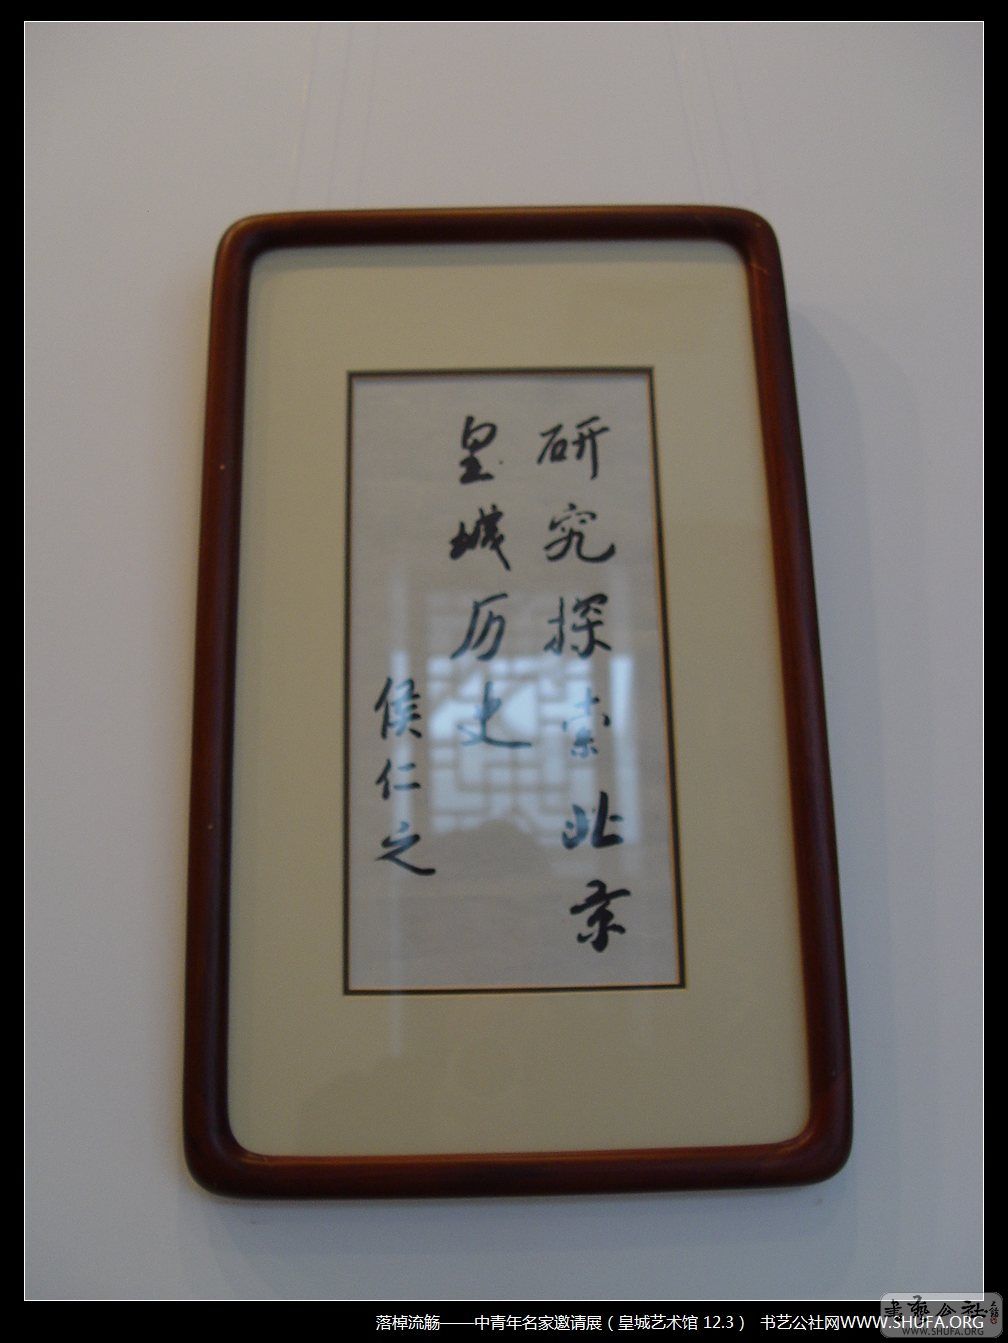 研究探索北京
皇城历史
侯仁之
落棹流觞——中青年名家邀请展（皇城艺术馆 12.3） 书艺公社网WWW.SHUFA.ORG
書藝公社
WWW.SHUFA.ORG